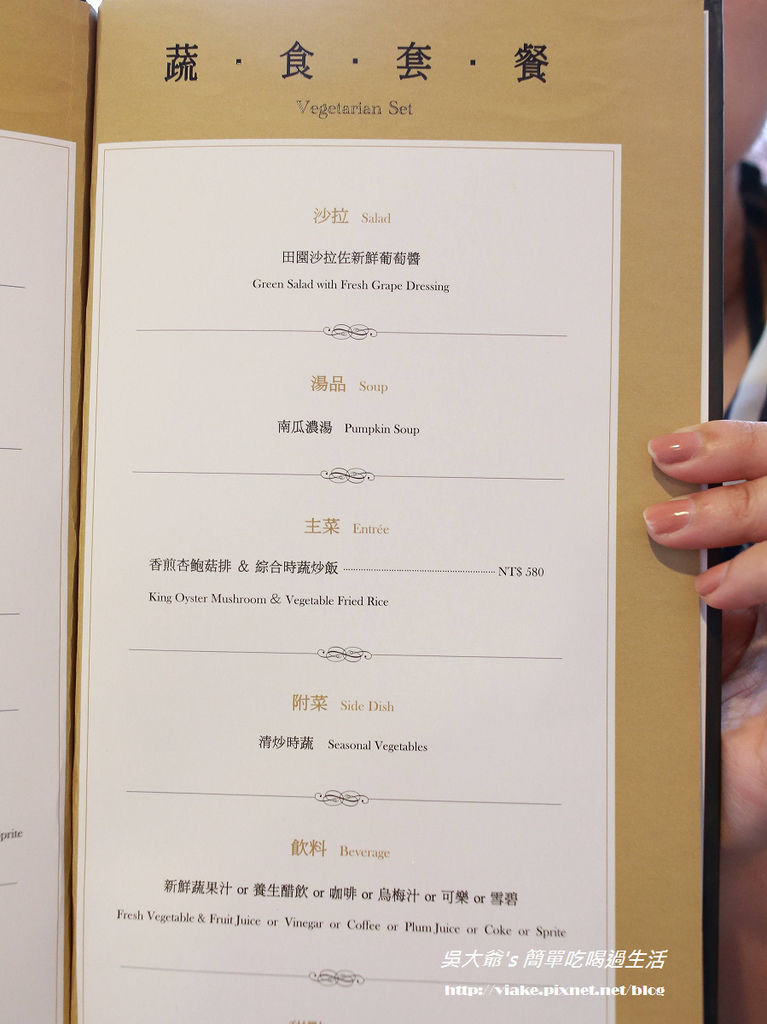 蔬・食・套・餐
Vegetarian Set
沙拉 Salad
田園沙拉佐新鮮葡萄醬
Green Salad with Fresh Grape Dressing
湯品 Soup
南瓜濃湯 Pumpkin Soup
主菜 Entrée
香煎杏鮑菇排 & 綜合時蔬炒飯 NT$ 580
King Oyster Mushroom & Vegetable Fried Rice
附菜 Side Dish
清炒時蔬 Seasonal Vegetables
飲料 Beverage
新鮮蔬果汁 or 養生醋飲 or 咖啡 or 烏梅汁 or 可樂 or 雪碧
Fresh Vegetable & Fruit Juice or Vinegar or Coffee or Plum Juice or Coke or Sprite
吳大爺's 簡單吃喝過生活
http://viake.pixnet.net/blog